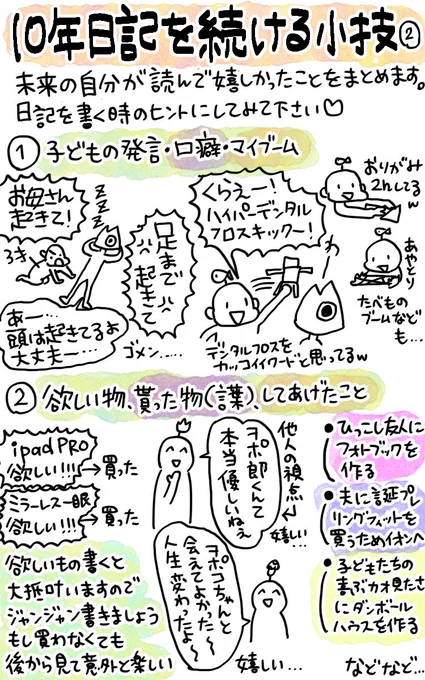 10年日記を続ける小技②
未来の自分が読んで嬉しかったことをまとめます。
日記を書く時のヒントにしてみて下さい♡
① 子どもの発言・口癖・マイブーム
お母さん
起きて!
ZZZ
3才
あー…
頭は起きてるよ
大丈夫ー…
足まで
起きて
ゴメン……
くらえー!
ハイパーデンタル
フロスキックー!
デンタルフロスを
カッコイイワードと思ってるw
おりがみ
2hしてる
w
あやとり
たべもの
ブームなど
も…
② 欲しい物、貰った物(言葉)、してあげたこと
ipad PRO
欲しい!!!
→買った
ミラーレス一眼
欲しい!!!
→買った
欲しいもの書くと
大抵叶いますので
ジャンジャン書きましょう
もし買わなくても
後から見て意外と楽しい
ヲポ郎くんて
本当優しいねぇ
他人の視点
←嬉しい…
ヲポコちゃんと
会えてよかった〜
人生変わったよ〜
嬉しい…
●ひっこし友人に
フォトブックを
作る
●夫に誕プレ
リングフィットを
買うためイオンへ
●子どもたちの
喜ぶカオ見たさ
にダンボール
ハウスを作る
などなど…